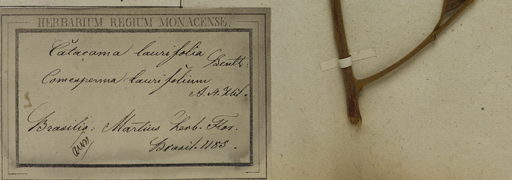 HERBARIUM REGIUM MONACENSE.
Catacoma laurifolia Benth:
Comesperma laurifolium
A. St. Hil.
Brasilia: Martius herb. Flor.
Brasil. 1183.